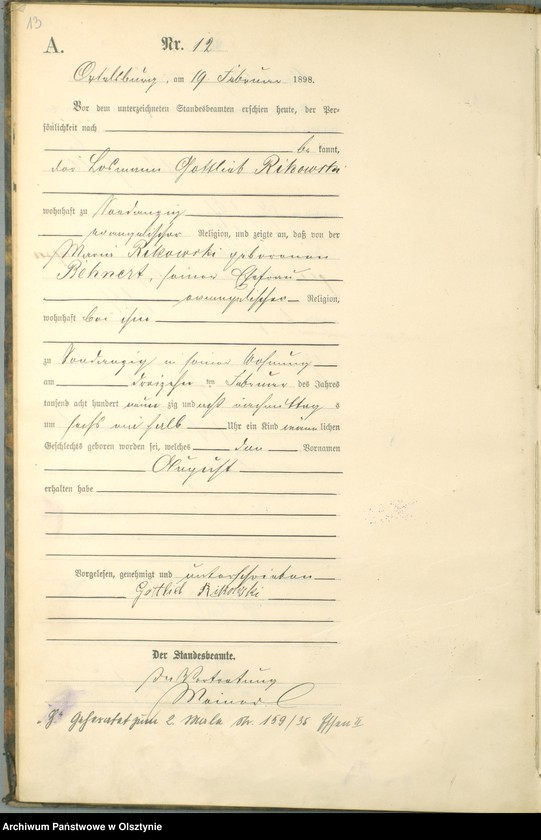 13
A. Nr. 12
Ortelsburg, am 19 Februar 1898.
Vor dem unterzeichneten Standesbeamten erschien heute, der Per-
sönlichkeit nach
be kannt,
der Losmann Gottlieb Rikowski
wohnhaft zu
evangelischer Religion, und zeigte an, daß von der
Marie Rikowski geborenen
Behnert, seiner Ehefrau
evangelischer Religion,
wohnhaft bei ihm
zu in seiner Wohnung
am dreizehn ten Februar des Jahres
tausend acht hundert neun zig und acht Nachmittag s
um sechs ein halb Uhr ein Kind männ lichen
Geschlechts geboren worden sei, welches den Vornamen
August
erhalten habe
Vorgelesen, genehmigt und unterschrieben
Gottlieb Rikowski
Der Standesbeamte.
In Vertretung
"G" Geheiratet zum 2. Male Nr. 159/35 Essen II
Archiwum Państwowe w Olsztynie